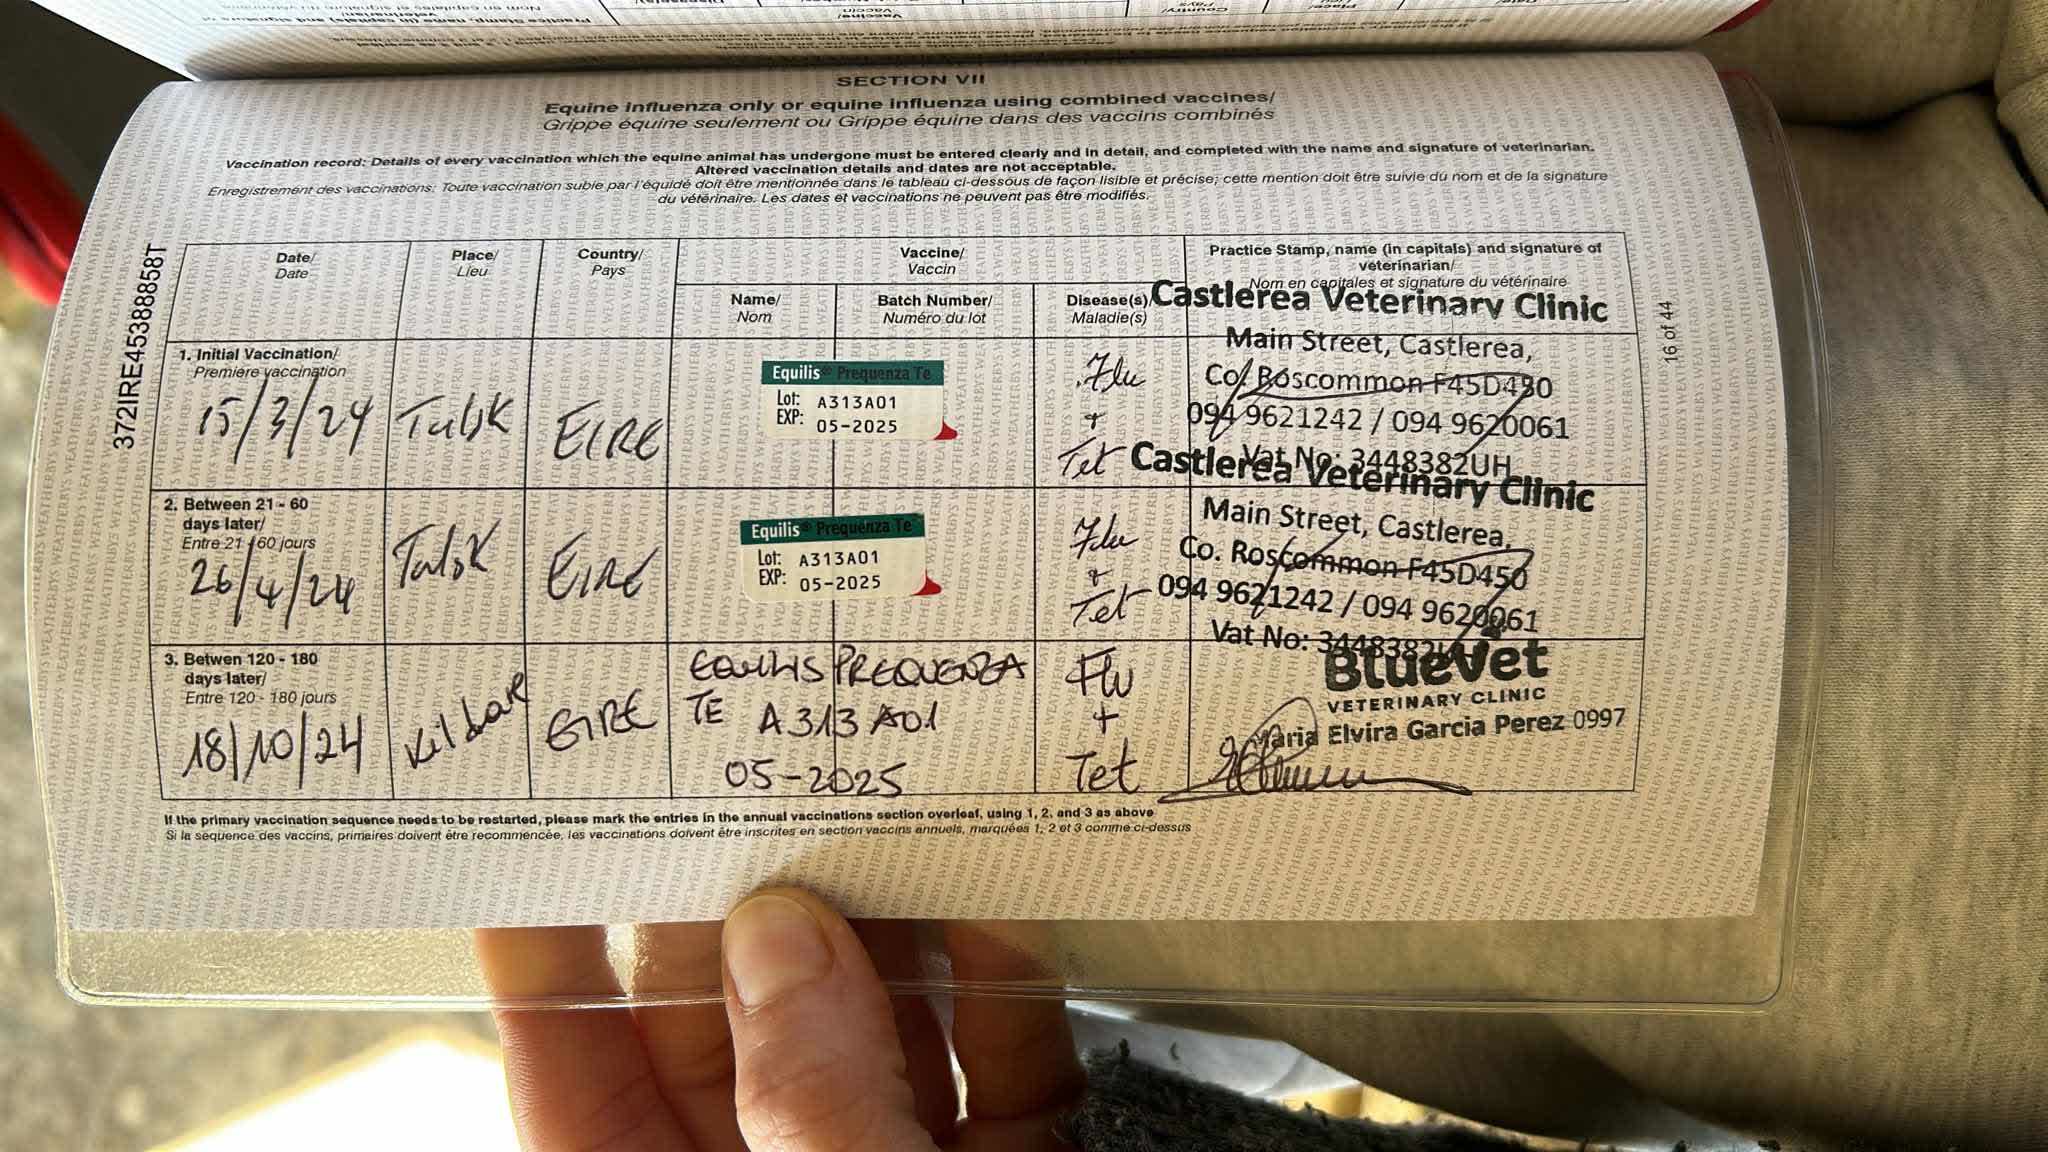 SECTION VII
Equine influenza only or equine influenza using combined vaccines/
Grippe équine seulement ou Grippe équine dans des vaccins combinés
Vaccination record: Details of every vaccination which the equine animal has undergone must be entered clearly and in detail, and completed with the name and signature of veterinarian.
Altered vaccination details and dates are not acceptable.
Enregistrement des vaccinations: Toute vaccination subie par l'équidé doit être mentionnée dans le tableau ci-dessous de façon lisible et précise; cette mention doit être suivie du nom et de la signature
du vétérinaire. Les dates et vaccinations ne peuvent pas être modifiés.
372IRE45388858T
16 of 44
Date/
Date
Place/
Lieu
Country/
Pays
Vaccine/
Vaccin
Name/
Nom
Batch Number/
Numéro du lot
Disease(s)/
Maladie(s)
Practice Stamp, name (in capitals) and signature of
veterinarian/
Nom en capitales et signature du vétérinaire
1. Initial Vaccination/
Première vaccination
15/3/24
Tulsk
EIRE
Equilis® Prequenza Te
Lot: A313A01
EXP: 05-2025
Flu
+
Tet
Castlerea Veterinary Clinic
Main Street, Castlerea,
Co. Roscommon F45D450
094 9621242 / 094 9620061
Vat No: 3448382UH
2. Between 21 - 60
days later/
Entre 21 - 60 jours
26/4/24
Tulsk
EIRE
Equilis® Prequenza Te
Lot: A313A01
EXP: 05-2025
Flu
+
Tet
Castlerea Veterinary Clinic
Main Street, Castlerea,
Co. Roscommon F45D450
094 9621242 / 094 9620061
Vat No: 3448382UH
3. Betwen 120 - 180
days later/
Entre 120 - 180 jours
18/10/24
Kildare
EIRE
EQUILIS PREQUENZA
TE A313A01
05-2025
Flu
+
Tet
BlueVet
VETERINARY CLINIC
Maria Elvira Garcia Perez 0997
If the primary vaccination sequence needs to be restarted, please mark the entries in the annual vaccinations section overleaf, using 1, 2, and 3 as above
Si la séquence des vaccins, primaires doivent être recommencée, les vaccinations doivent être inscrites en section vaccins annuels, marquées 1, 2 et 3 comme ci-dessus